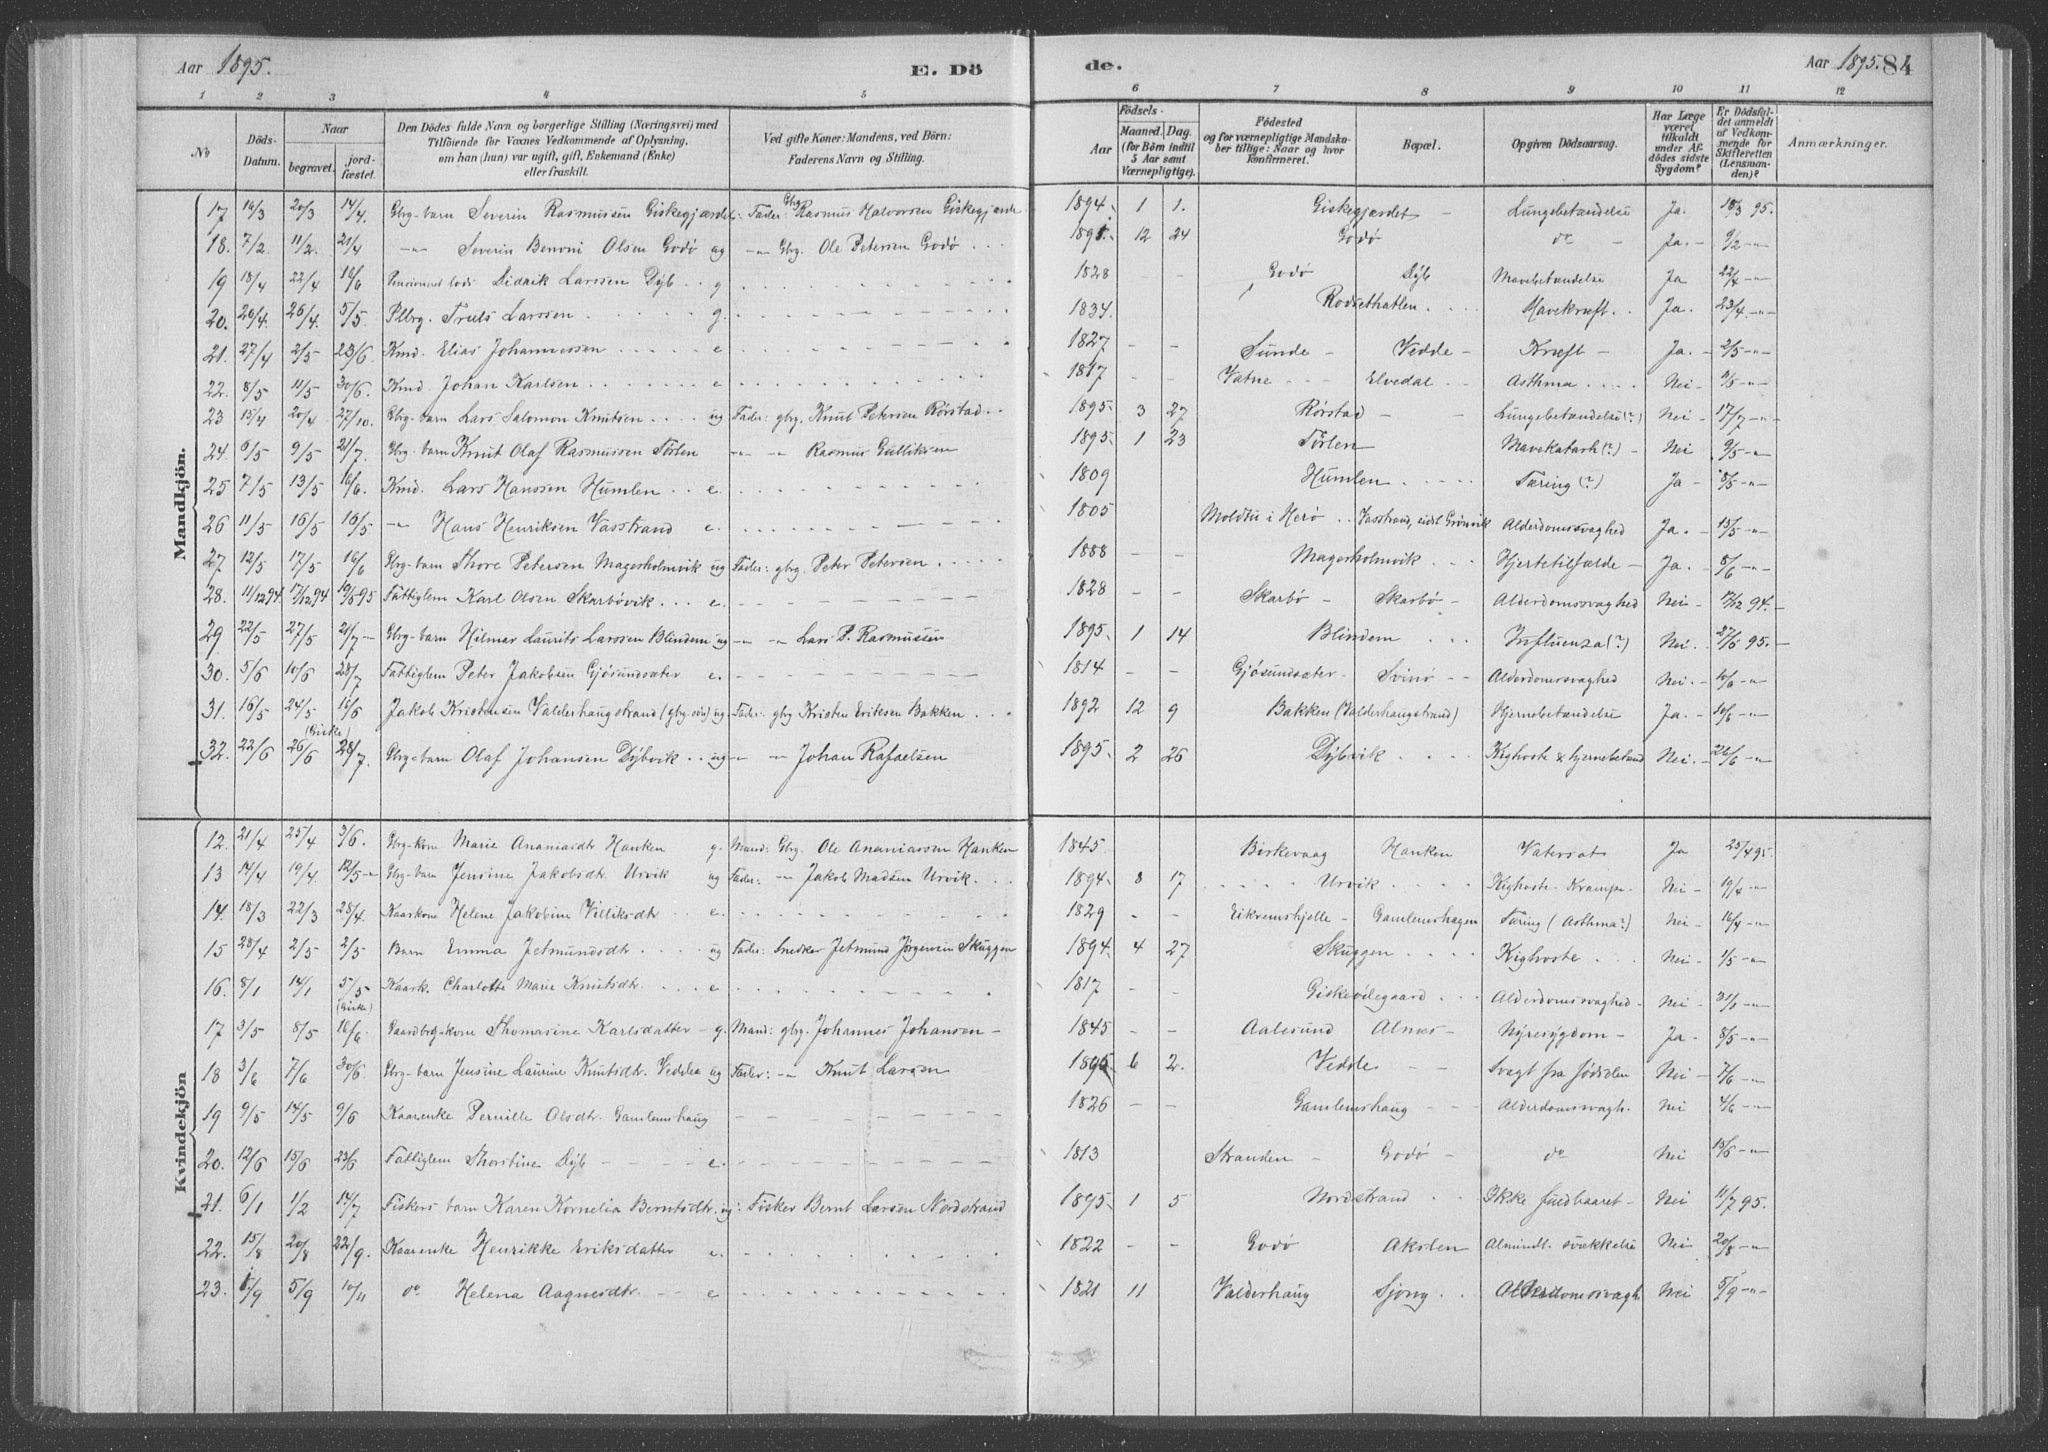 Aar 1895.
E. Döde.
Aar 1895. 84
1 2 3 4 5 6 7 8 9 10 11 12
No
Döds-Datum.
Naar
begravet.
jord-fæstet.
Den Dödes fulde Navn og borgerlige Stilling (Næringsvei) med
Tilföiende for Voxnes Vedkommende af Oplysning,
om han (hun) var ugift, gift, Enkemand (Enke)
eller fraskilt.
Ved gifte Koner: Mandens, ved Börn:
Faderens Navn og Stilling.
Aar
Födsels-
Maaned. Dag.
(for Börn indtil
5 Aar samt
Værnepligtige).
Födested
og for værnepligtige Mandska-
ber tillige: Naar og hvor
konfirmeret.
Bopæl.
Opgiven Dödsaarsag.
Har Læge
været
tilkaldt
under Af-
dödes sidste
Sygdom?
Er Dödsfal-
det anmeldt
af Vedkom-
mende for
Skifteretten
(Lensman-
den)?
Anmærkninger.
Mandkjön.
17 14/3 20/3 14/4. Gbrg-barn Severin Rasmussen Giskegjærdet: Fader: Gbrg Rasmus Halvorsen Giskegjærde 1894. 1 1. Giskegjærdet - Lungebetændelse Ja. 18/3 95.
18. 7/2. 11/2. 21/4 -"- Severin Benoni Olsen Godø ug -"- Gbrg. Ole Petersen Godø 12 24 Godø do - Ja. - 9/2 -"-
19 18/4 22/4 16/6 Pensioneret lods Didrik Larssen Dyb g 1828 - - Godø Dyb Mavebetændelse Ja 22/4 -"-
20. 20/4. 26/4. 5/5. Plbrg. Truls Larssen g. 1834. Rodsethatlen Mavekræft Ja. 23/4. -"-
21. 27/4 2/5 23/6. Kmd. Elias Johannessen e 1827 - - Sunde - Vedde - Kræft - Ja. - 2/5 -"-
22. 8/5 11/5 30/6. Kmd Johan Karlsen e 1817 - - Vatne Elvedal Asthma Nei -"-
23 15/4 20/4 27/10. Gbrg-barn Lars Salomon Knutsen ug Fader: gbrg. Knut Petersen Rørstad 1895. 3 27 Rørstad - Lungebetændelse (?) Nei - 17/7 -"-
24. 6/5 9/5 21/7. Gbrg.-barn Knut Olaf Rasmussen Tørlen -"- -"- Rasmus Gulliksen 1895. 1 23 Tørlen Mavekatarh (?) - Nei 9/5 -"-
25 7/5 13/5 16/6. Kmd. Lars Hanssen Humlen e. 1809 Humlen Tæring (?) Ja - 8/5 -"-
26 11/5 16/5 16/5 -"- Hans Henriksen Vasstrand e. 1805 Moldtu i Herø Vasstrand, sidst Grønvik Alderdomssvaghed Ja. - 15/5 -"-
27 12/5 17/5 16/6 Gbrg-barn Thore Petersen Magerholmvik ug Fader: gbrg. Peter Petersen 1888 - - Magerholmvik Hjertetilfælde - Ja. - 8/6 -"-
28. 11/12 94 17/12 94 Fattiglem Karl Olsen Skarbøvik e. 1828 - - Skarbø - Skarbø - Alderdomssvaghed Nei - 17/12 94. -
29 22/5 27/5 21/7 - Gbrg-barn Hilmar Laurits Larssen Blindem ug -"- -"- Lars P. Rasmussen 1895. 1 14 Blindem Influenza (?) Nei. 27/5 95. -
30. 5/6 10/6 28/7 Fattiglem Peter Jakobsen Gjøsundsæter e. 1814 - - Gjøsundsæter - Svinø - Alderdomssvaghed Nei. - 10/6 -"-
31. 16/5 24/5 16/6 Jakob Kristensen Valderhaugstrand (gbrg-søn) ug Fader: gbrg Kristen Eriksen Bakken 1892 12 9 Bakken (Valderhaugstrand) Hjernebetændelse Ja. - 10/6 -"-
32. 22/6 (Giske) 26/6 28/7. Gbrg-barn Olaf Johansen Dybvik ug -"- -"- Johan Rafaelsen 1895. 2 26 Dybvik Kighoste & hjernebetænd Nei. 26/6 -"-
Kvindekjön
12. 21/4 25/4 3/6. Gbrg-kone Marie Ananiasdtr Hanken g. Mand: Gbrg. Ole Ananiassen Hanken 1845 Birkevaag Hanken Vatersot Ja 25/4 95.
13 14/4 19/4. 12/5 -"- Gbrg-barn Jensine Jakobsdtr. Urvik ug Fader: -"- Jakob Madsen Urvik. 1894. 8 17 Urvik Kighoste. Krampe. Nei - 19/4 -"-
14. 18/3 22/3 28/4. Kaarkone Helene Jakobine Villiksdtr e. 1829 - - Eikremshjelle - Gamlemshagen Tæring (Asthma?) Nei - 16/4 -"-
15 28/4 2/5 2/5 Barn Emma Jetmundsdtr. ug Fader: Snedker Jetmund Jørgensen Skuggen 1894. 4 27 Skuggen Kighoste Nei - 1/5 -"-
16. 8/1 14/1 5/5 (Giske) Kaark. Charlotte Marie Knutsdtr. e 1817 - - Giskeødegaard Alderdomssvaghed - Nei - -"-
17 3/5 8/5 16/6 Gaardbrg-kone Thomasine Karlsdatter - g. Mand: gbrg. Johannes Johansen - 1845 - - Aalesund Alnæs - Nyresygdom - Ja - 8/5 -"-
18 3/6 7/6 30/6. Gbrg-barn Jensine Laurine Knutsdtr. Vedde ug Fader: -"- Knut Larsen 1895 6 2. Vedde - - Svagt fra fødselen Nei - 7/6 -"-
19 9/5 14/5 9/6 Kaarenke Pernille Olsdtr. Gamlemshaug 1826 - - Gamlemshaug - - Alderdomssvagh. Nei 4/6 -"-
20. 12/6 15/6 23/6 Fattiglem Thorstine Dyb - e. 1813 Stranden - Godø - do Nei 15/6 -"-
21. 6/1 1/2 14/7 Fiskers barn Karen Kornelia Berntsdtr. ug: Fisker Bernt Larsen Nordstrand 1895. 1 5 Nordstrand Ikke fuldbaaret - Nei 11/7 95.
22. 15/8 20/8 22/9. Kaarenke Henrikke Eriksdatter e. 1822 - - Godø Akslen Almindl. svækkelse Nei 20/8 -"-
23. 5/9 10/11 do Helena Aagnesdtr. e 1821 11 Valderhaug Alderdomssvagh. Nei 5/9 -"-